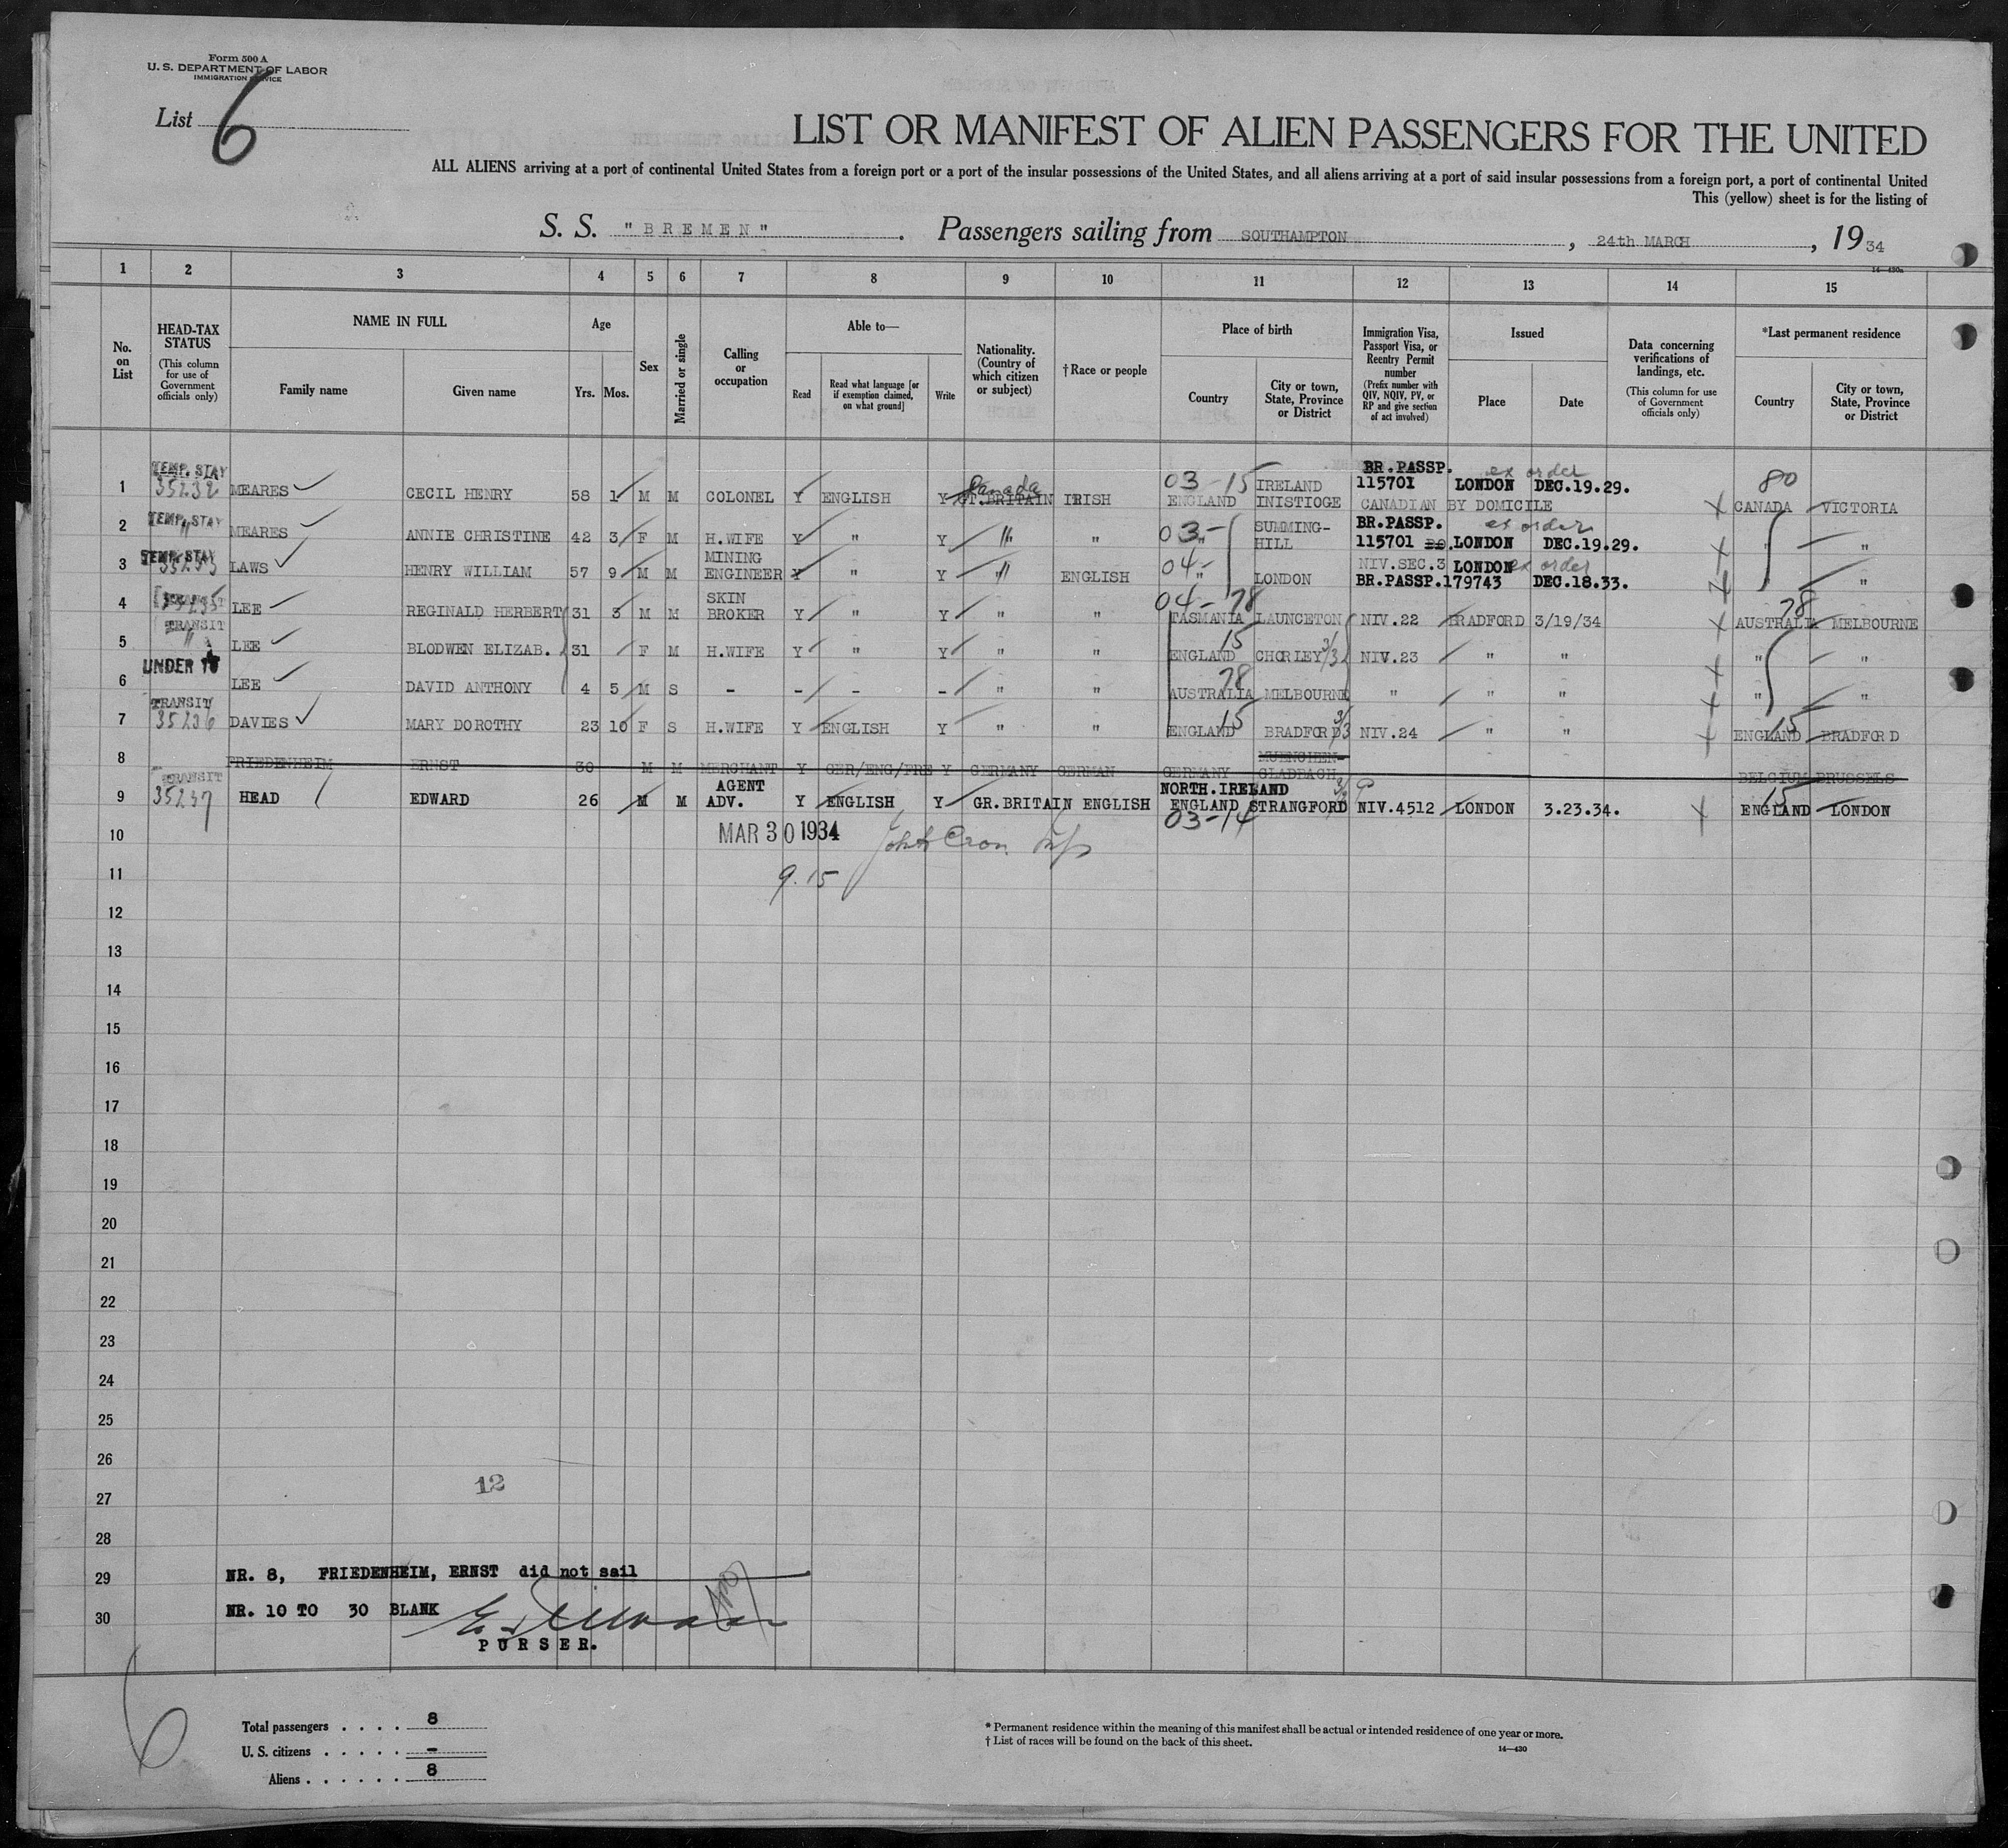 Form 500 A
U. S. DEPARTMENT OF LABOR
IMMIGRATION SERVICE
List 6
LIST OR MANIFEST OF ALIEN PASSENGERS FOR THE UNITED
ALL ALIENS arriving at a port of continental United States from a foreign port or a port of the insular possessions of the United States, and all aliens arriving at a port of said insular possessions from a foreign port, a port of continental United
This (yellow) sheet is for the listing of
S. S. "BREMEN". Passengers sailing from SOUTHAMPTON, 24th MARCH, 1934
14—430a
1 2 3 4 5 6 7 8 9 10 11 12 13 14 15
No. on List
HEAD-TAX STATUS (This column for use of Government officials only)
NAME IN FULL
Family name Given name
Age
Yrs. Mos.
Sex
Married or single
Calling or occupation
Able to—
Read Read what language [or if exemption claimed, on what ground] Write
Nationality. (Country of which citizen or subject)
†Race or people
Place of birth
Country City or town, State, Province or District
Immigration Visa, Passport Visa, or Reentry Permit number (Prefix number with QIV, NQIV, PV, or RP and give section of act involved)
Issued
Place Date
Data concerning verifications of landings, etc. (This column for use of Government officials only)
*Last permanent residence
Country City or town, State, Province or District
TEMP. STAY BR.PASSP. ex order
1 35232 MEARES CECIL HENRY 58 1 M M COLONEL Y ENGLISH Y Canada GT.BRITAIN IRISH 03-15 ENGLAND IRELAND INISTIOGE 115701 LONDON DEC.19.29. CANADIAN BY DOMICILE X 80 CANADA VICTORIA
TEMP. STAY BR.PASSP. ex order
2 " MEARES ANNIE CHRISTINE 42 3 F M H.WIFE Y " Y " " 03- " SUMMING-HILL 115701 LONDON DEC.19.29. X " "
TEMP. STAY
3 35233 LAWS HENRY WILLIAM 57 9 M M MINING ENGINEER Y " Y " ENGLISH 04- " LONDON NIV.SEC.3 LONDON ex order BR.PASSP.179743 DEC.18.33. X " "
4 35235 LEE REGINALD HERBERT 31 3 M M SKIN BROKER Y " Y " " 04-78 TASMANIA LAUNCETON NIV.22 BRADFORD 3/19/34 X 78 AUSTRALIA MELBOURNE
TRANSIT
5 " LEE BLODWEN ELIZAB. 31 F M H.WIFE Y " Y " " 15 ENGLAND CHORLEY NIV.23 " " X " "
UNDER 16
6 LEE DAVID ANTHONY 4 5 M S - - - - " " 78 AUSTRALIA MELBOURNE " " " X " "
TRANSIT
7 35236 DAVIES MARY DOROTHY 23 10 F S H.WIFE Y ENGLISH Y " " 15 ENGLAND BRADFORD NIV.24 " " X 15 ENGLAND BRADFORD
8 FRIEDENHEIM ERNST 30 M M MERCHANT Y GER/ENG/FRE Y GERMANY GERMAN GERMANY MUENCHEN-GLADBACH BELGIUM BRUSSELS
TRANSIT
9 35237 HEAD EDWARD 26 M M AGENT ADV. Y ENGLISH Y GR.BRITAIN ENGLISH NORTH.IRELAND ENGLAND STRANGFORD 03-14 NIV.4512 LONDON 3.23.34. X 15 ENGLAND LONDON
10 MAR 30 1934 John Cron
11 9.15
12
13
14
15
16
17
18
19
20
21
22
23
24
25
26
27 12
28
29 NR. 8, FRIEDENHEIM, ERNST did not sail
30 NR. 10 TO 30 BLANK
PURSER.
6
Total passengers . . . . 8
U. S. citizens . . . . . -
Aliens . . . . . . 8
* Permanent residence within the meaning of this manifest shall be actual or intended residence of one year or more.
† List of races will be found on the back of this sheet.
14—430